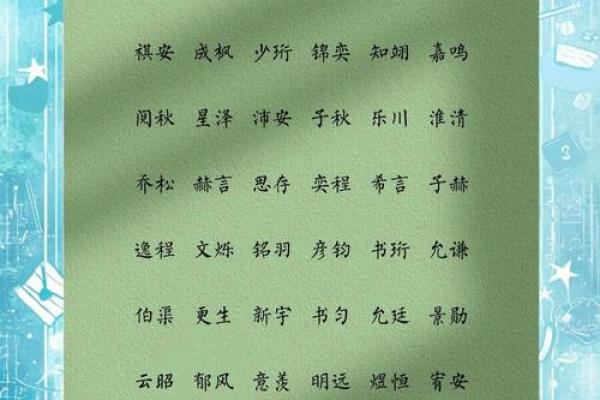 祺安 成枫 少珩 锦奕 知翊 嘉鸣
阅秋 星泽 沛安 子秋 乐川 淮清
乔松 赫言 思存 奕程 希言 子赫
逸程 文烁 铭羽 彦钧 书珩 允谦
伯渠 更生 新宇 书匀 允廷 景勋
云昭 郁风 意羡 明远 煜恒 宥安